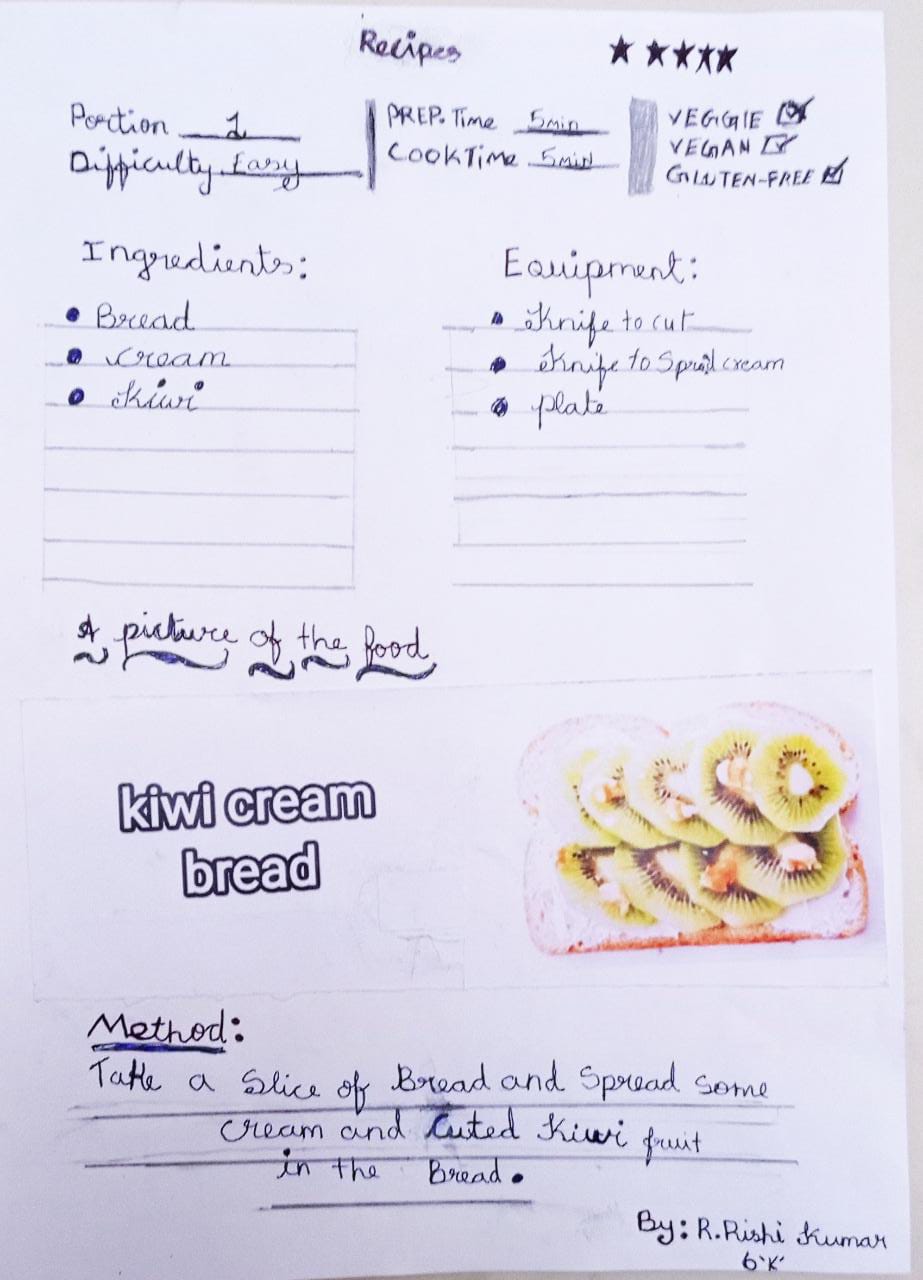 Recipes
Portion 1
Difficulty Easy
PREP. Time 5min
COOK Time 5min
VEGGIE
VEGAN
GLUTEN-FREE
Ingredients:
Bread
cream
Kiwi
Equipment:
Knife to cut
Knife to Spread cream
plate
A picture of the food
kiwi cream
bread
Method:
Take a Slice of Bread and Spread Some
cream and Cuted Kiwi fruit
in the Bread.
By: R.Rishi Kumar
6'K'